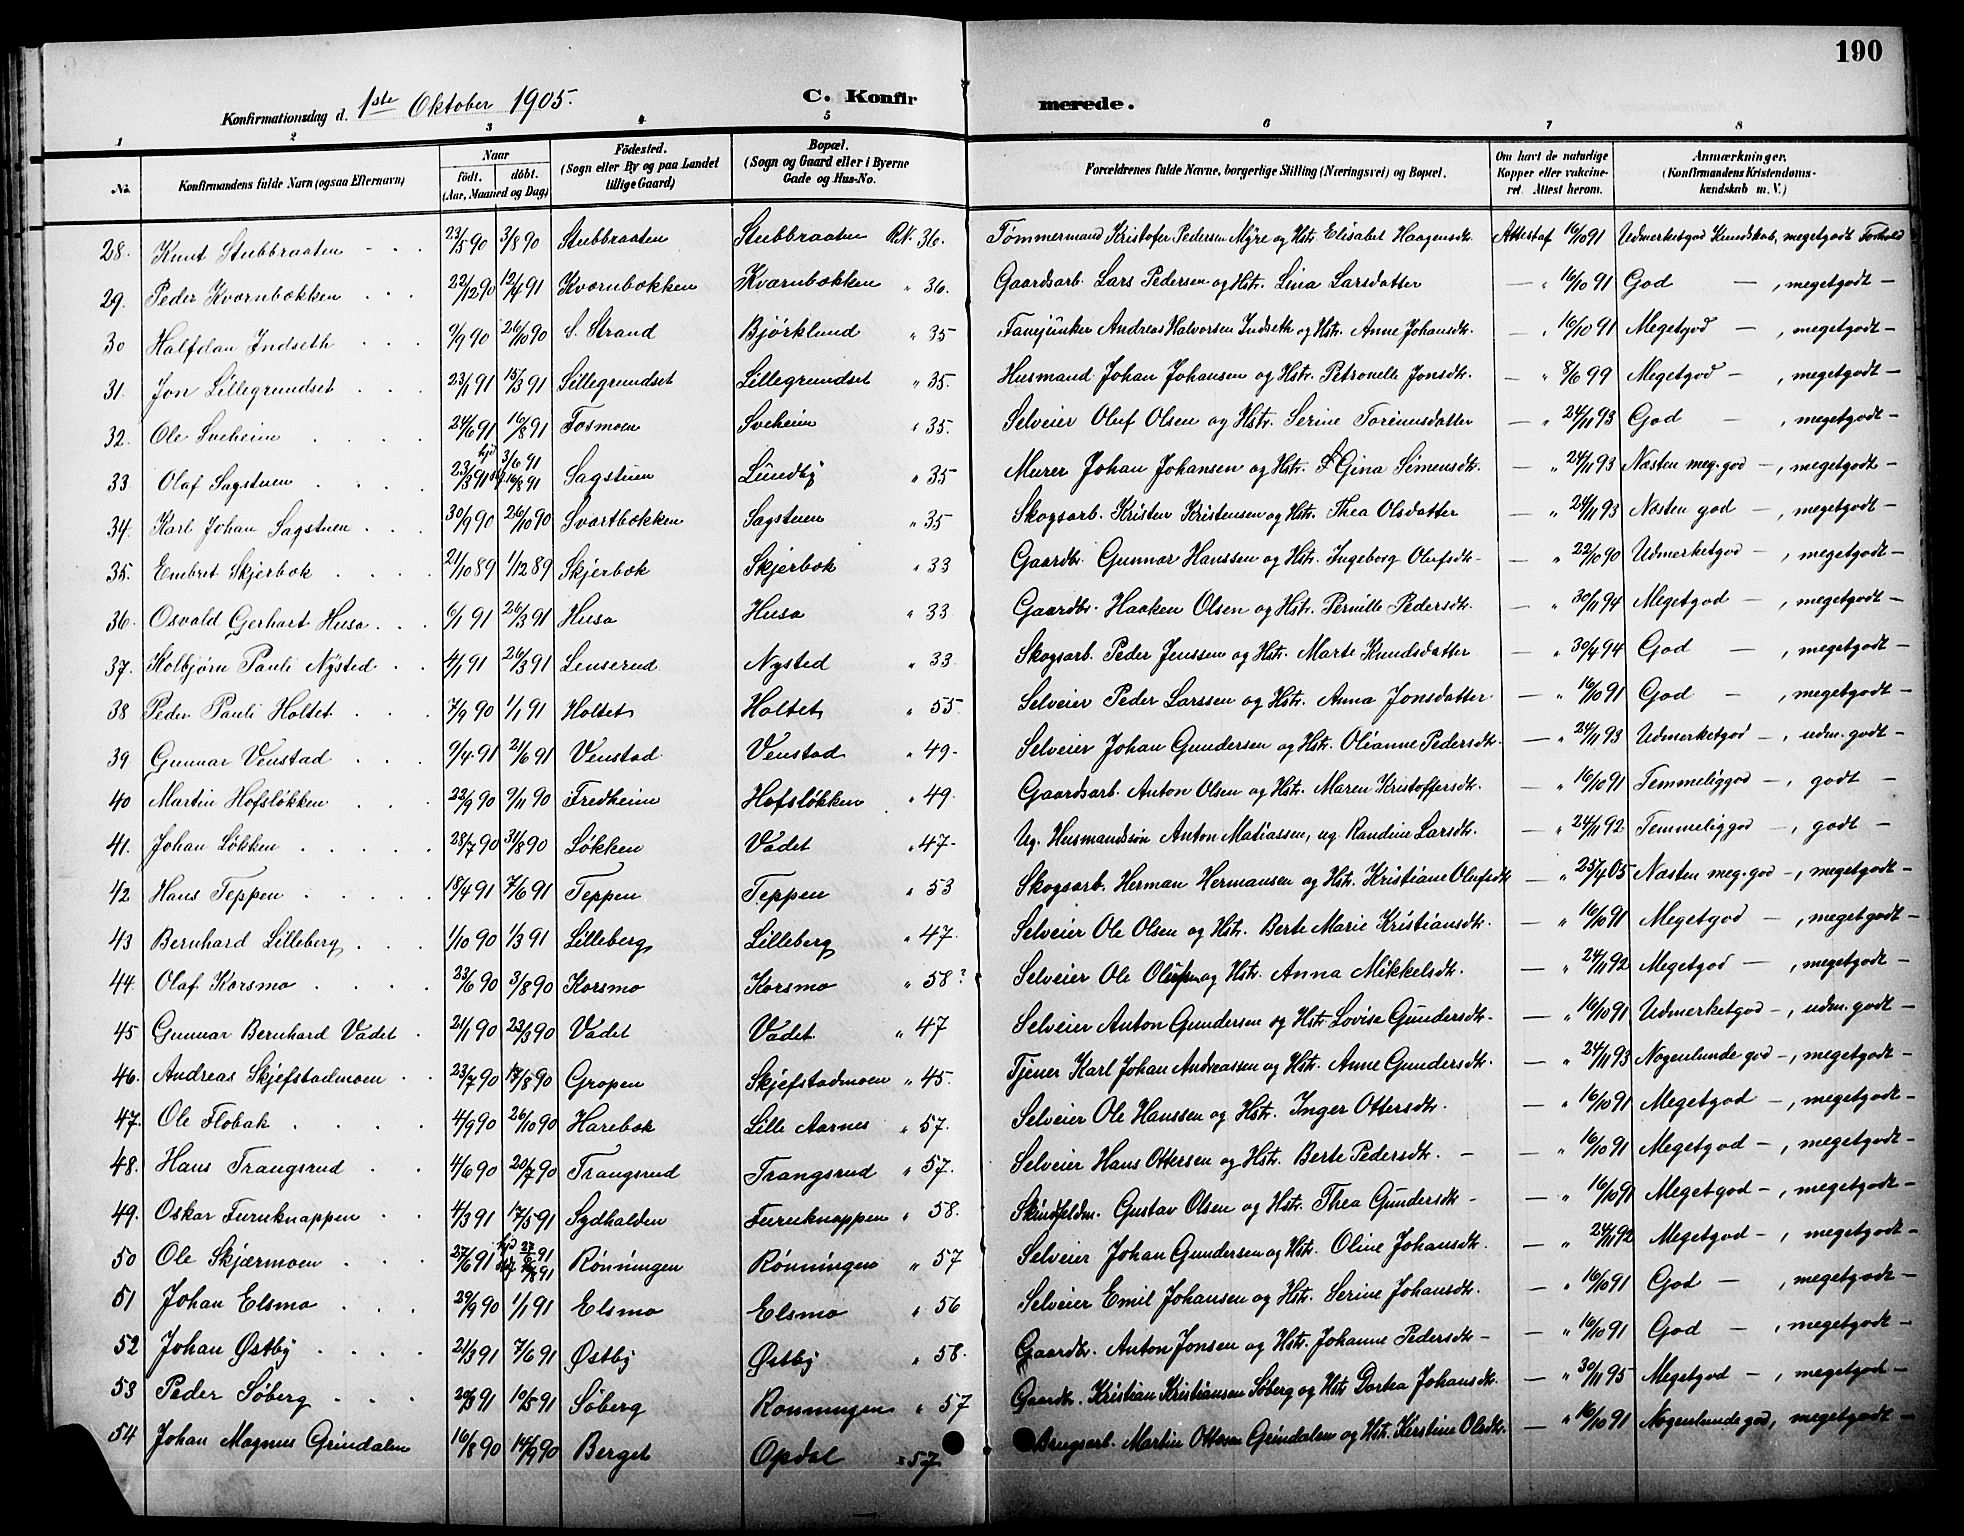 190
Konfirmationsdag d. 1ste Oktober 1905. C. Konfirmerede.
1 2 3 4 5 6 7 8
No. Konfirmandens fulde Navn (ogsaa Efternavn) Naar født, døbt. (Aar, Maaned og Dag) Fødested. (Sogn eller By og paa Landet tillige Gaard) Bopæl. (Sogn og Gaard eller i Byerne Gade og Hus-No. Forældrenes fulde Navne, borgerlige Stilling (Næringsvei) og Bopæl. Om havt de naturlige Kopper eller vakcineret. Attest herom. Anmærkninger. (Konfirmandens Kristendomskundskab m. V.)
28. Knut Stubbraaten 23/5 90 3/8 90 Stubbraaten Stubbraaten RN. 36. Tømmermand Kristofer Pedersen Myre og Hstr. Elisabet Haagensdtr. Attest af 16/10 91 Udmerketgod Kundskab, megetgodt Forhold
29. Peder Kværnbækken 22/12 90 12/4 91 Kværnbækken Kværnbækken " 36. Gaardsarb. Lars Pedersen og Hstr. Lina Larsdatter — " 16/10 91 God —, megetgodt —
30 Halfdan Indseth 9/9 90 26/10 90 S. Strand Bjørklund " 35 Fanejunker Andreas Halvorsen Indseth og Hstr. Anne Johansdtr. — " 16/10 91 Megetgod —, megetgodt —
31. Jon Lillegrundset 23/1 91 15/3 91 Lillegrundset Lillegrundset " 35. Husmand Johan Johansen og Hstr. Petronelle Jonsdtr. — " 8/6 99 Megetgod —, megetgodt —
32. Ole Sveheim 24/6 91 16/8 91 Fosmoen Sveheim " 35. Selveier Oluf Olsen og Hstr. Serine Toreniusdatter — " 24/11 93 God —, megetgodt —
33 Olaf Sagstuen 23/3 91 hjd 3/6 91 16/8 91 Sagstuen Lundby " 35 Murer Johan Johansen og Hstr. Gina Simensdtr. — " 24/11 93 Næsten meg. god —, megetgodt —
34. Karl Johan Sagstuen 30/9 90 26/10 90 Svartbækken Sagstuen " 35 Skogsarb. Krister Kristensen og Hstr. Thea Olsdatter — " 24/11 93 Næsten god —, megetgodt —
35. Embret Skjerbæk 21/10 89 1/12 89 Skjerbæk Skjerbæk " 33 Gaardbr. Gunnar Hanssen og Hstr. Ingeborg Olufsdtr. — " 22/10 90 Udmerketgod —, megetgodt —
36. Osvald Gerhart Husa 6/1 91 26/3 91 Husa Husa " 33 Gaardbr. Haaken Olsen og Hstr. Pernille Pedersdtr. — " 30/11 94 Megetgod —, megetgodt —
37. Kolbjørn Pauli Nysted 4/1 91 26/3 91 Lenserud Nysted " 33 Skogsarb. Peder Jenssen og Hstr. Marte Knudsdatter — " 30/4 94 God —, megetgodt —
38 Peder Pauli Holtet 7/9 90 1/1 91 Holtet Holtet " 55 Selveier Peder Larssen og Hstr. Anna Jonsdatter — " 16/10 91 God —, megetgodt —
39 Gunnar Venstad 9/4 91 21/6 91 Venstad Venstad " 49. Selveier Johan Gundersen og Hstr. Olianne Pedersdtr. — " 24/11 93 Udmerketgod —, udm. godt —
40 Martin Hofsløkken 23/9 90 9/11 90 Fredheim Hofsløkken " 49. Gaardsarb. Anton Olsen og Hstr. Maren Kristoffersdtr. " 16/10 91 Temmeliggod —, godt —
41. Johan Løkken 28/7 90 31/8 90 Løkken Vadet " 47. Ug. Husmandssøn Anton Matiassen, ug. Randine Larsdtr. — " 24/11 92 Temmeliggod —, godt —
42 Hans Teppen 18/4 91 7/6 91 Teppen Teppen " 53 Skogsarb. Herman Hermansen og Hstr. Kristiane Olufsdtr — " 25/4 05 Næsten meg. god —, megetgodt —
43 Bernhard Lilleberg 1/10 90 1/3 91 Lilleberg Lilleberg " 47. Selveier Ole Olsen og Hstr. Berte Marie Kristiansdtr. — " 16/10 91 Megetgod —, megetgodt —
44. Olaf Korsmo 23/6 90 3/8 90 Korsmo Korsmo " 58? Selveier Ole Olufsen og Hstr. Anna Mikkelsdtr. — " 24/11 92 Megetgod —, megetgodt —
45 Gunnar Bernhard Vadet 21/1 90 23/3 90 Vadet Vadet " 47 Selveier Anton Gundersen og Hstr. Lovise Gundersdtr. — " 16/10 91 Udmerketgod —, udm. godt —
46. Andreas Skjefstadmoen 23/7 90 17/8 90 Gropen Skjefstadmoen " 45. Tjener Karl Johan Andreassen og Hstr. Anne Gundersdtr. — " 24/11 93 Nogenlunde god —, megetgodt —
47. Ole Flobak 4/9 90 26/10 90 Harebæk Lille Aarnes " 57. Selveier Ole Hanssen og Hstr. Inger Ottersdtr. — " 16/10 91 Megetgod —, megetgodt —
48. Hans Trangsrud 4/6 90 20/7 90 Trangsrud Trangsrud " 57. Selveier Hans Ottersen og Hstr. Berte Pedersdtr. — " 16/10 91 Megetgod —, megetgodt —
49. Oskar Furuknappen 4/3 91 17/5 91 Sydhalden Furuknappen " 58. Skindfeldm. Gustav Olsen og Hstr. Thea Gundersdtr. — " 16/10 91 Megetgod —, megetgodt —
50 Ole Skjærmoen 27/6 91 hjd 27/6 91 /8 91 Rønningen Rønningen " 57 Selveier Johan Gundersen og Hstr. Oline Johansdtr. — " 24/11 92 Megetgod —, megetgodt —
51 Johan Elsmo 29/9 90 1/1 91 Elsmo Elsmo " 56 Selveier Emil Johansen og Hstr. Serine Johansdtr. — " 16/10 91 God —, megetgodt —
52 Johan Østby 21/3 91 7/6 91 Østby Østby " 58. Gaardbr. Anton Jonsen og Hstr. Johanne Pedersdtr — " 16/10 91 God —, megetgodt —
53 Peder Søberg 20/3 91 10/5 91 Søberg Rønningen " 57 Gaardbr. Kristian Kristiansen Søberg og Hstr. Dorka Johansdtr. — " 30/11 95 Megetgod —, megetgodt —
54 Johan Magnus Grindalen 16/8 90 14/9 90 Berget Opdal " 57 Brugsarb. Martin Ottesen Grindalen og Hstr. Kerstine Olsdtr. — " 16/10 91 Nogenlunde god, megetgodt —